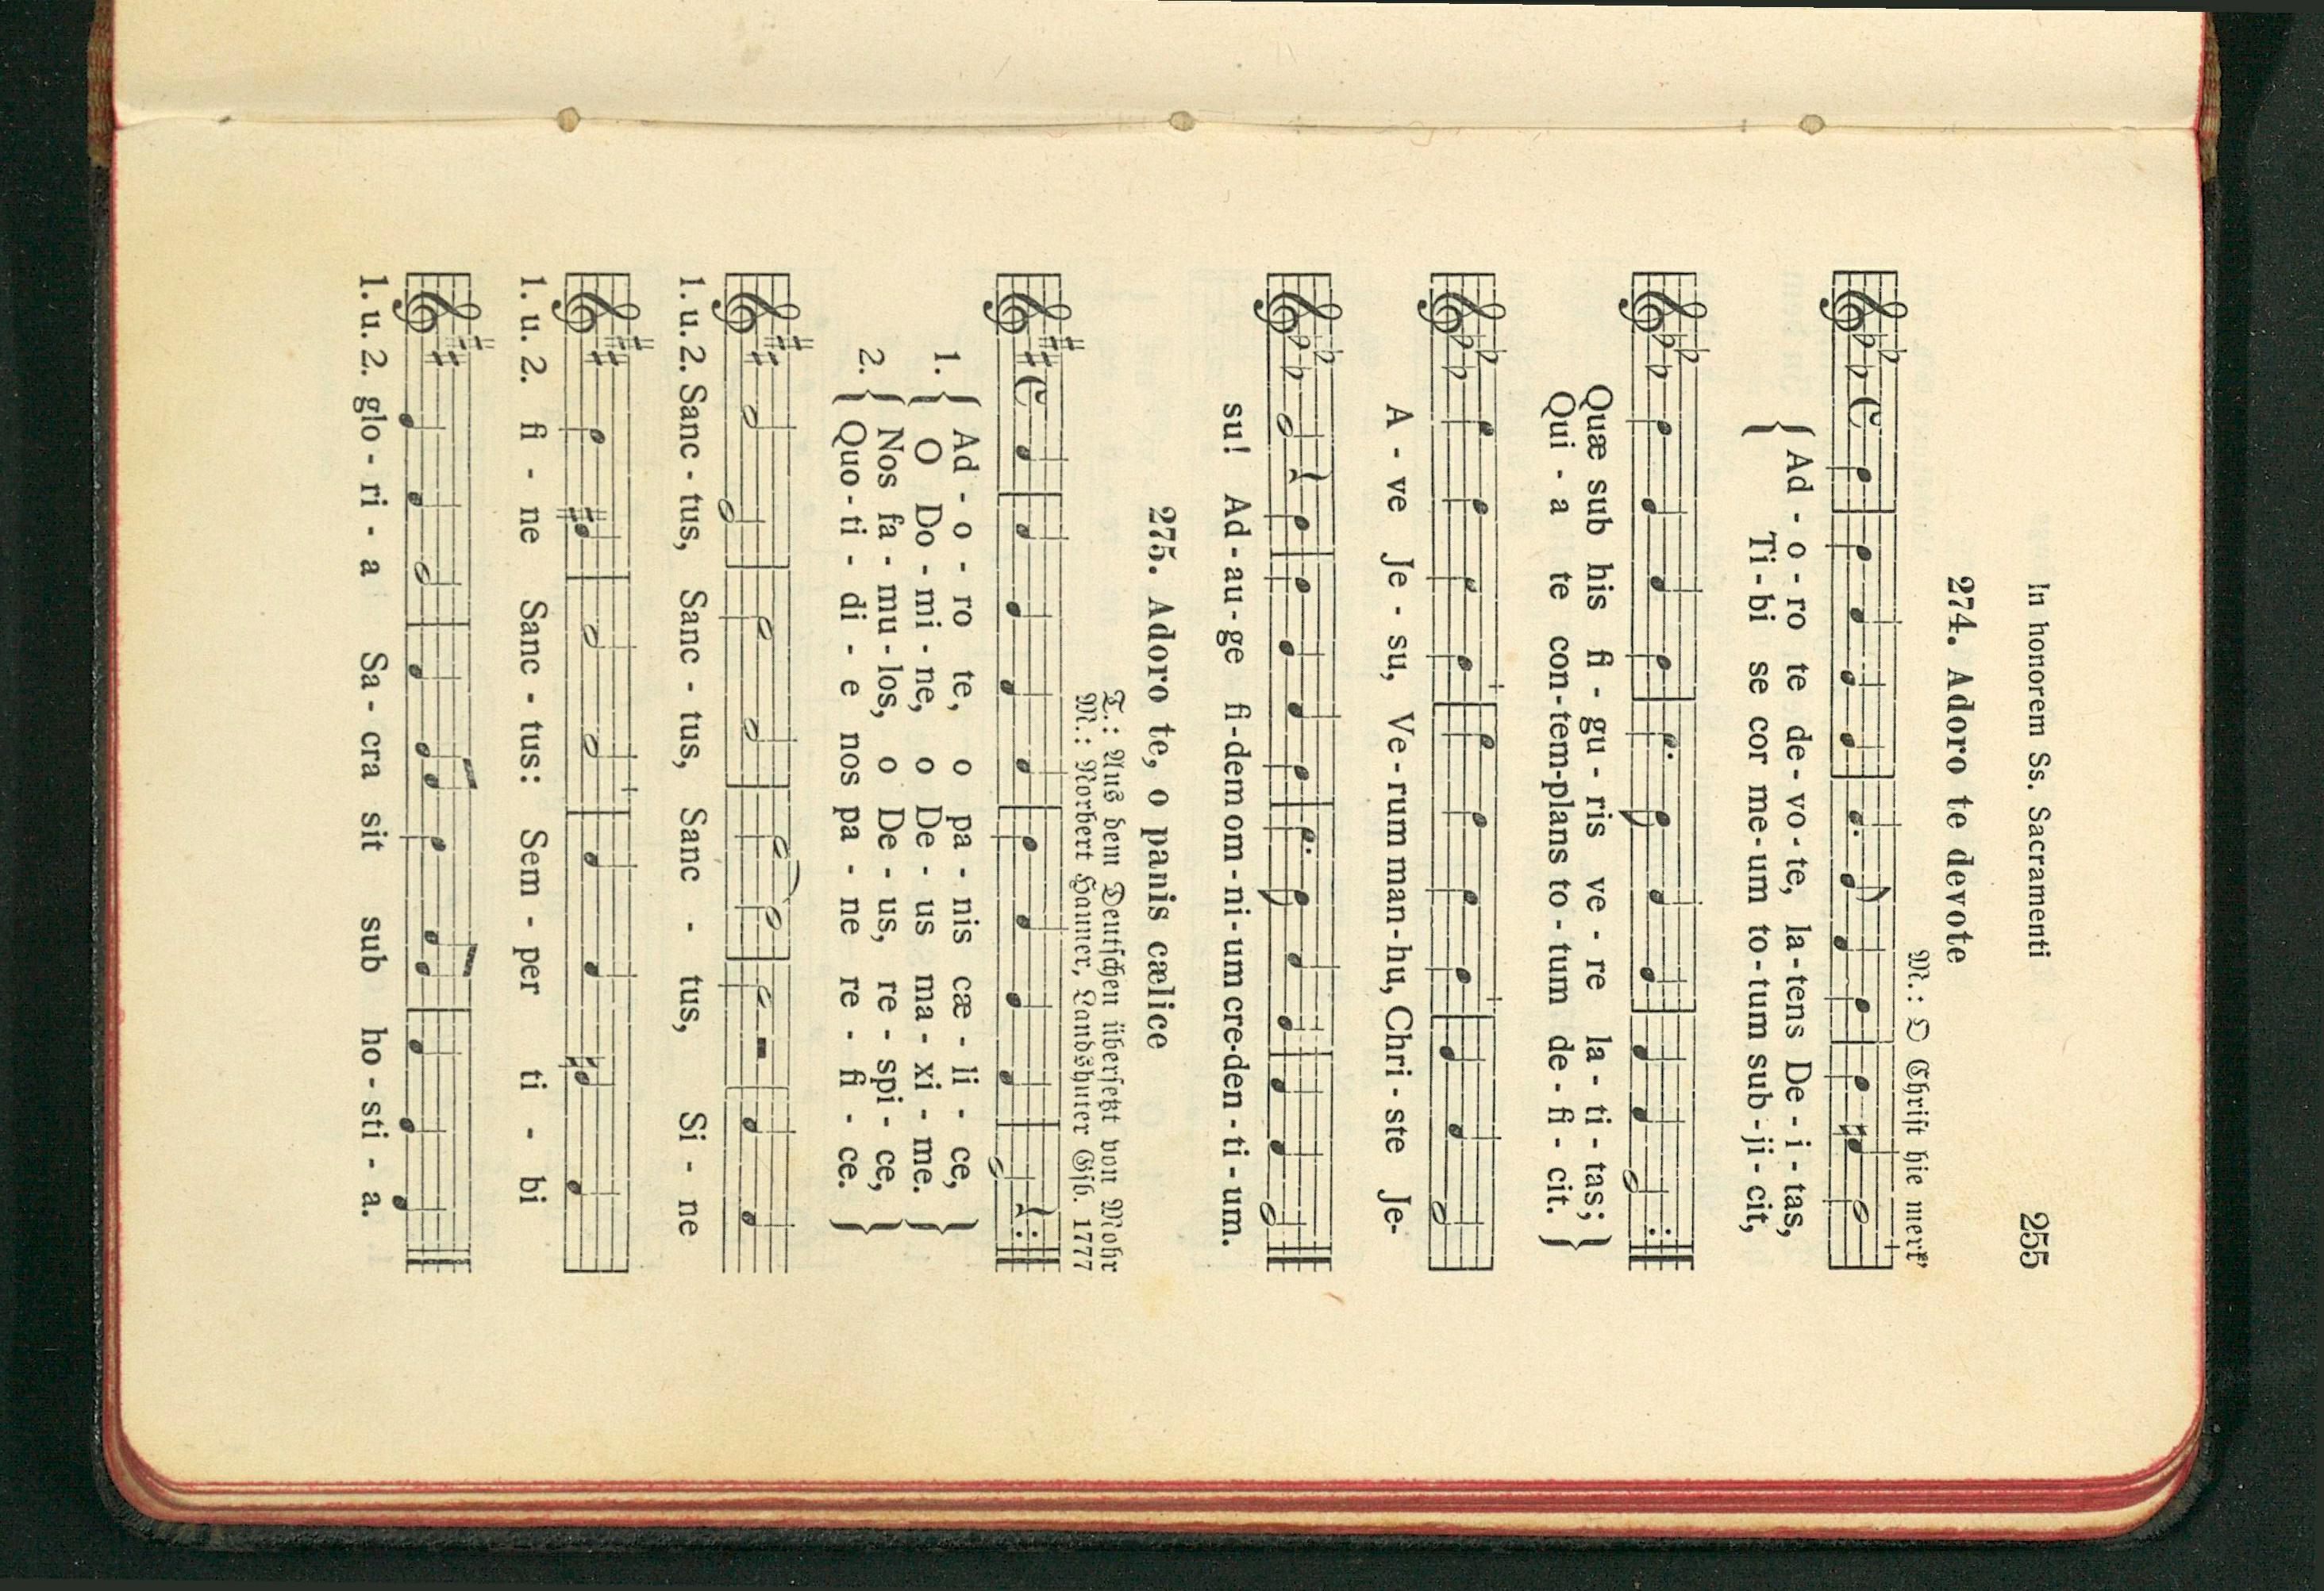 In honorem Ss. Sacramenti 255
274. Adoro te devote
M.: O Christ hie merk'
Ad - o - ro te de - vo - te, la - tens De - i - tas,
Ti - bi se cor me - um to - tum sub - ji - cit,
Quæ sub his fi - gu - ris ve - re la - ti - tas;
Qui - a te con - tem - plans to - tum de - fi - cit.
A - ve Je - su, Ve - rum man - hu, Chri - ste Je-
su! Ad - au - ge fi - dem om - ni - um cre - den - ti - um.
275. Adoro te, o panis cælice
T.: Aus dem Deutschen übersetzt von Mohr
M.: Norbert Hauner, Landshuter Gsb. 1777
1. Ad - o - ro te, o pa - nis cæ - li - ce,
O Do - mi - ne, o De - us ma - xi - me.
2. Nos fa - mu - los, o De - us, re - spi - ce,
Quo - ti - di - e nos pa - ne re - fi - ce.
1. u. 2. Sanc - tus, Sanc - tus, Sanc - tus, Si - ne
1. u. 2. fi - ne Sanc - tus: Sem - per ti - bi
1. u. 2. glo - ri - a Sa - cra sit sub ho - sti - a.